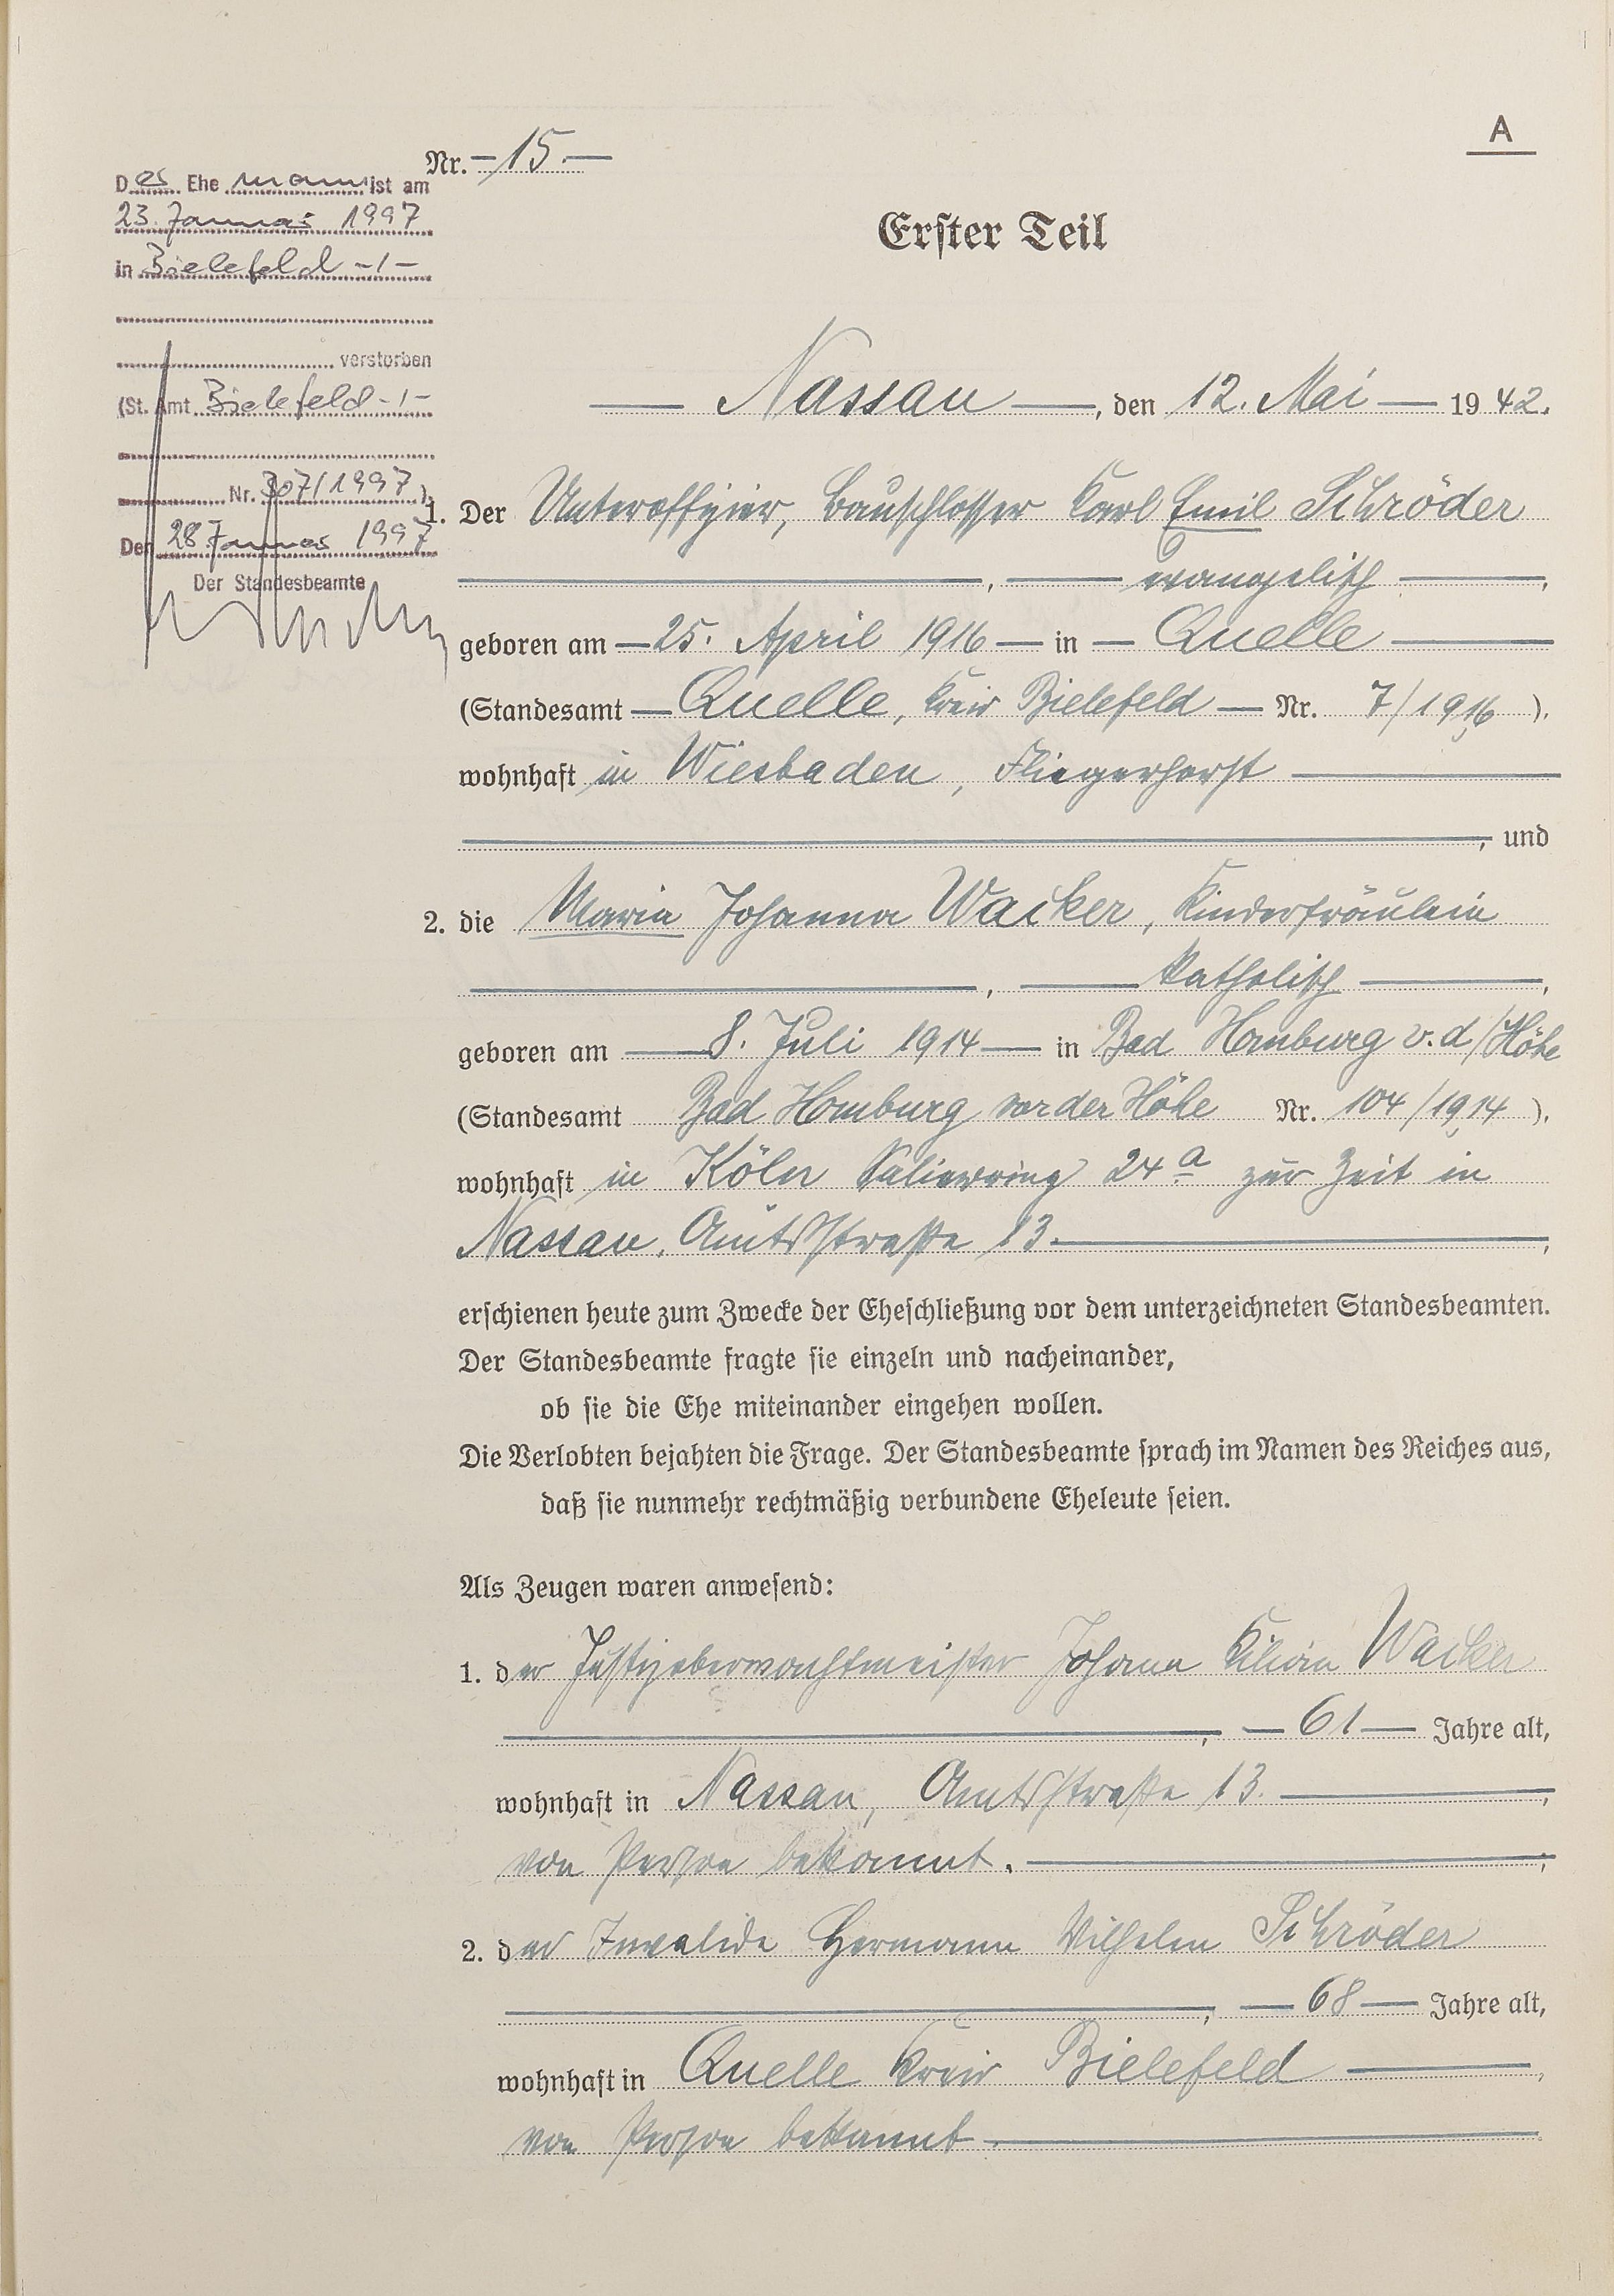 A
Nr. – 15. –
Erster Teil
Der Ehe mann ist am
23. Januar 1997
in Bielefeld -1-
verstorben
(St. Amt Bielefeld -1-
Nr. 307/1997 ).
Den 28 Januar 1997
Der Standesbeamte
— Nassau —, den 12. Mai — 19 42.
1. Der Unteroffizier, Bauschlosser Karl Emil Schröder
—, — evangelisch —,
geboren am — 25. April 1916 — in — Quelle —
(Standesamt — Quelle, Kreis Bielefeld — Nr. 7/1916 ).
wohnhaft in Wiesbaden, Fliegerhorst —
—, und
2. die Maria Johanna Wacker, Kinderfräulein
—, — katholisch —,
geboren am — 8. Juli 1914 — in Bad Homburg v. d/Höhe
(Standesamt Bad Homburg vor der Höhe Nr. 104/1914 ).
wohnhaft in Köln Salierring 24 a zur Zeit in
Nassau, Amtsstraße 13. —,
erschienen heute zum Zwecke der Eheschließung vor dem unterzeichneten Standesbeamten.
Der Standesbeamte fragte sie einzeln und nacheinander,
ob sie die Ehe miteinander eingehen wollen.
Die Verlobten bejahten die Frage. Der Standesbeamte sprach im Namen des Reiches aus,
daß sie nunmehr rechtmäßig verbundene Eheleute seien.
Als Zeugen waren anwesend:
1. der Justizoberwachtmeister Johann Kilian Wacker
—, — 61 — Jahre alt,
wohnhaft in Nassau, Amtsstraße 13. —,
von Person bekannt. —;
2. der Invalide Hermann Wilhelm Schröder
—, — 68 — Jahre alt,
wohnhaft in Quelle Kreis Bielefeld —,
von Person bekannt. —.